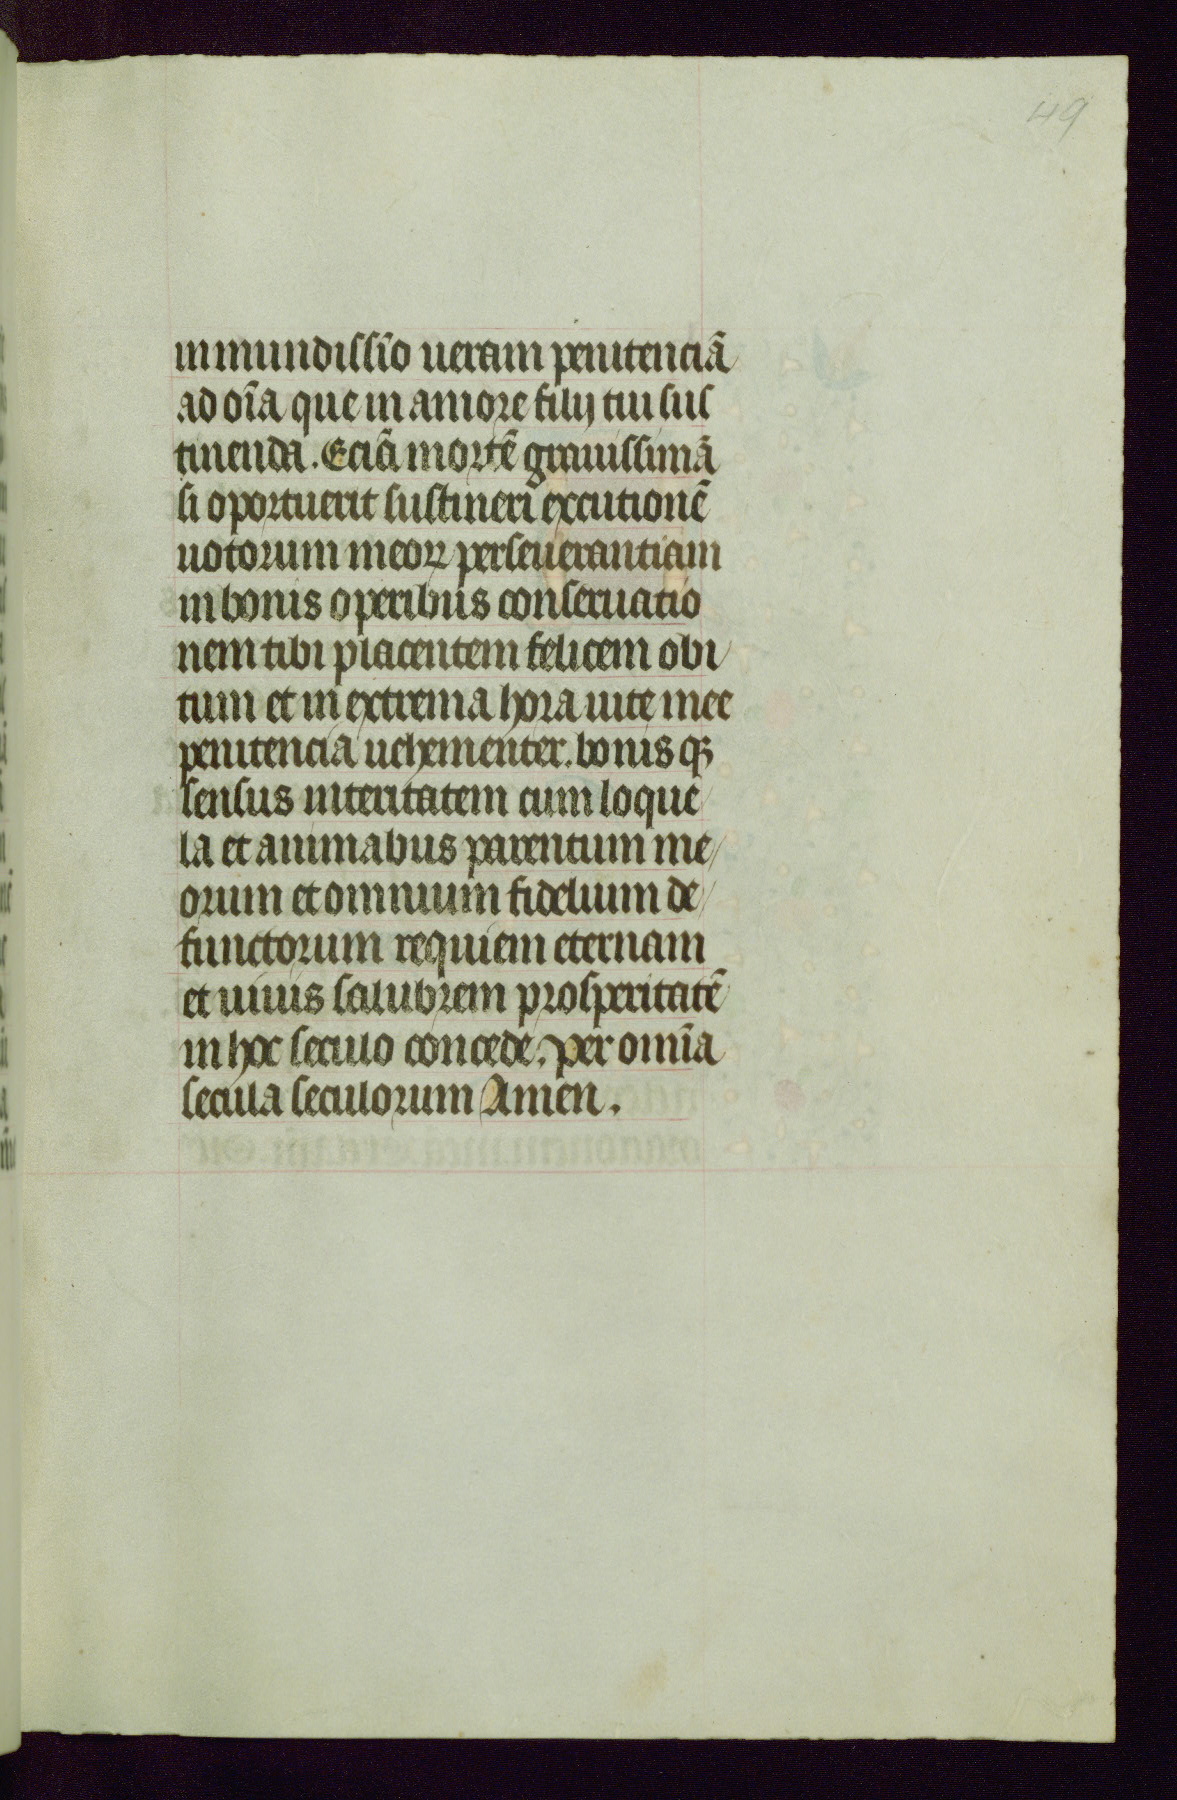 49
inmundissīo ueram penitenciā
ad oīa que in amore filij tui sus
tinenda. Eciā mortē grauissimā
si oportuerit sustineri excutionē
uotorum meoꝝ perseuerantiam
in bonis operibus conseruatio
nem tibi placentem felicem obi
tum et in extrema hora uite mee
penitencia uehementer. bonis qꝫ
sensus interitatem cum loque
la et animabus parentum me
orum et omnium fidelium de
functorum requiem eternam
et uiuis salubrem prosperitatē
in hoc seculo concede. per omīa
secula seculorum Amen.